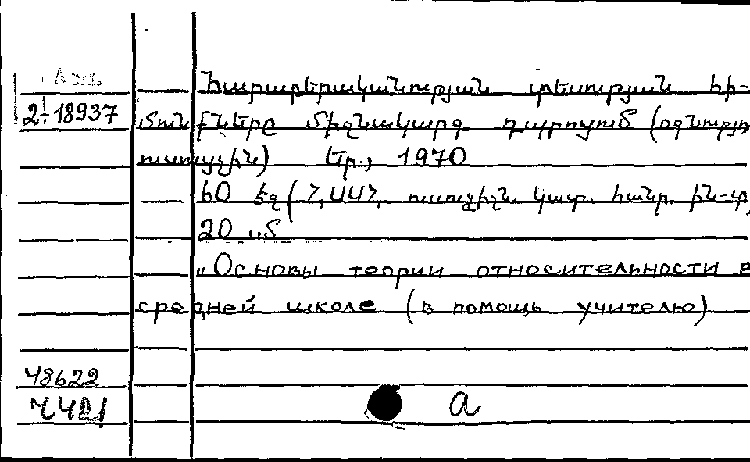 2-18937
Հարաբերականության տեսության հի-
մունքները միջնակարգ դպրոցում (օգնություն
ուսուցչին) Եր., 1970
60 էջ (Հ, ՍՍՀ, կատ. հանր. ին-տ)
20 սմ
"Основы теории относительности в
средней школе (в помощь учителю)
48622
a